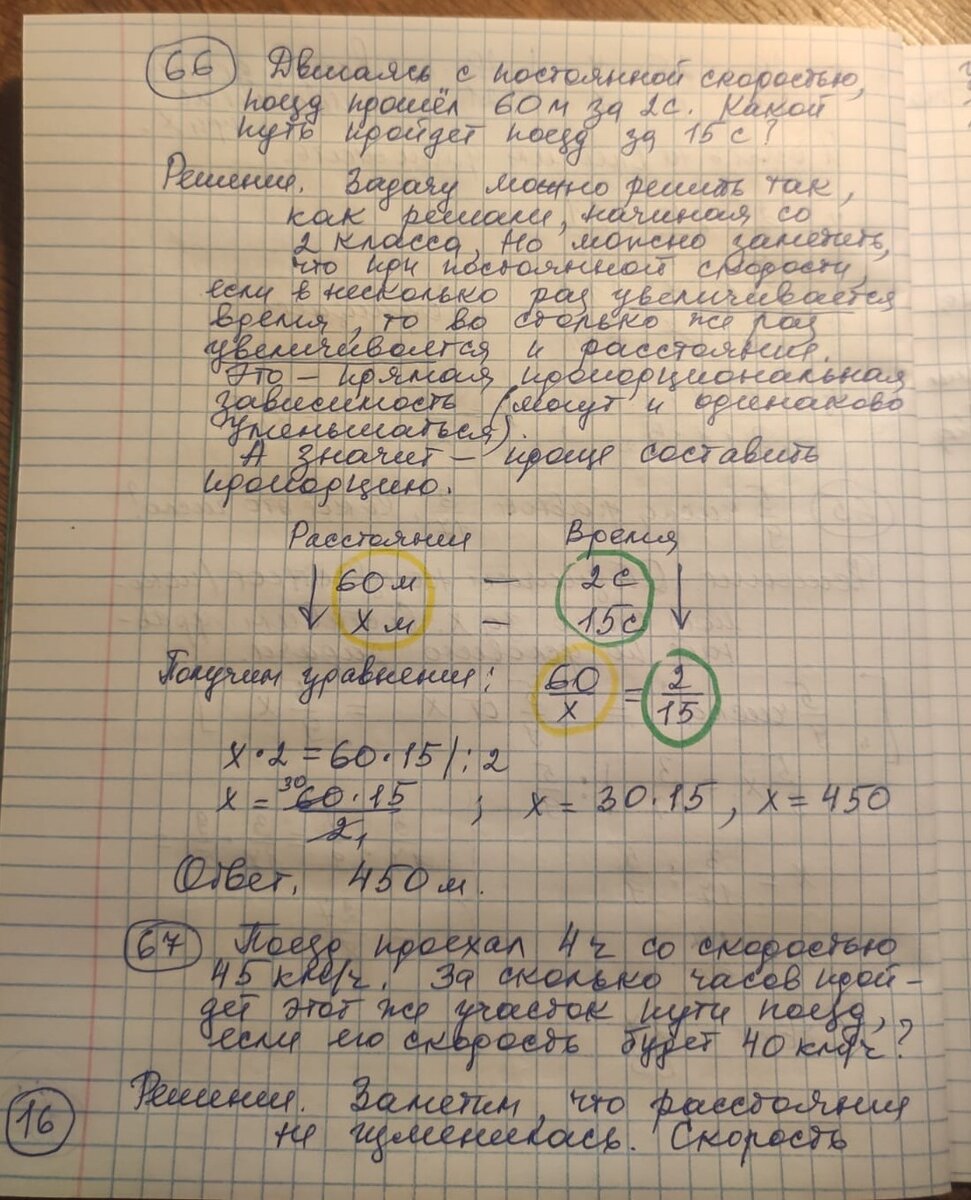 66 Двигаясь с постоянной скоростью,
поезд прошёл 60м за 2с. Какой
путь пройдет поезд за 15с?
Решение. Задачу можно решить так,
как решали, начиная со
2 класса. Но можно заметить,
что при постоянной скорости,
если в несколько раз увеличивается
время, то во столько же раз
увеличивается и расстояние.
Это – прямая пропорциональная
зависимость (могут и одинаково
уменьшаться).
А значит – проще составить
пропорцию.
Расстояние Время
60м – 2с
x м – 15с
Получим уравнение: 60/x = 2/15
x·2 = 60·15 |:2
x = 60·15/2 30 1 ; x = 30·15, x = 450
Ответ. 450м.
67 Поезд проехал 4ч со скоростью
45 км/ч. За сколько часов прой-
дет этот же участок пути поезд,
если его скорость будет 40 км/ч?
Решение. Заметим, что расстояние
не изменилась. Скорость
16